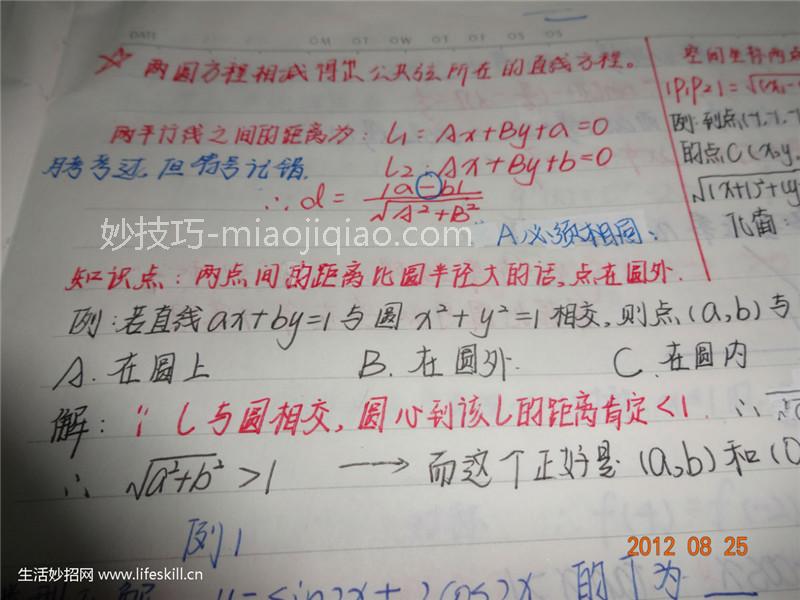 DATE
☆ 两圆方程相减得出公共弦所在的直线方程。
两平行线之间的距离为: L1 = Ax+By+a=0
月考考过,但符号记错. L2:Ax+By+b=0
∴d = |a-b| / √A²+B²
A必须相同.
知识点:两点间的距离比圆半径大的话,点在圆外.
例:若直线ax+by=1与圆x²+y²=1相交,则点(a,b)与
A. 在圆上 B. 在圆外. C. 在圆内
解: ∵ L与圆相交, 圆心到该L的距离肯定<1. ∴
∴ √a²+b² >1 → 而这个正好是(a,b)和(0
例1
y=sin2x+2cos2x 的T为
空间坐标两点
|P1P2|=√(x1-
例:到点(-1,-1,-
的点C(x,y,
√(x+1)²+(y
妙技巧-miaojiqiao.com
2012 08 25
生活妙招网 www.lifeskill.cn